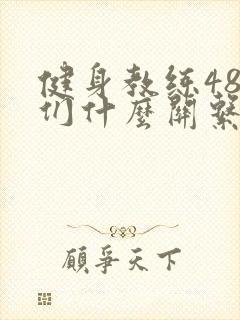 健身教练48
们什麼關繫
顧爭天下